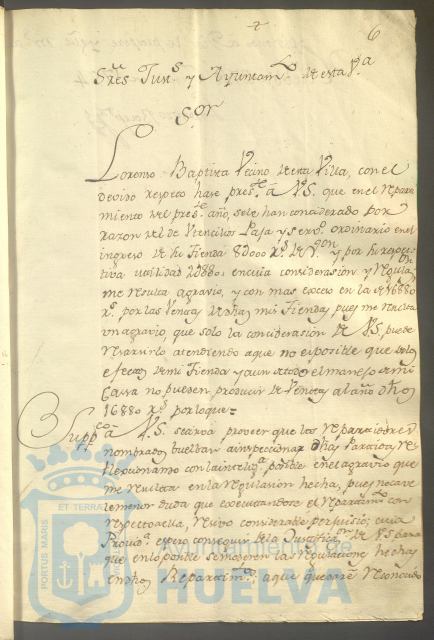 6
Sres Jusa y Ayuntamto de esta Va
Sor
Lorenzo Baptista Vecino de esta Villa, con el
devido respeto hase preste â V.S. que en el repara
miento del preste año, se le han considerado por
razon del de Utencilios Paja y servo ordinario en el
ingreso de su Tienda 8000 rs de Von y por su respec
tiva utilidad 20880: en cuia consideracion y regulaon
me resulta agravio, y con mas exceso en la de 16880
rs por las Ventas de dha mi Tienda, pues me resulta
un agravio, que solo la concideracion de V.S. puede
repararlo atendiendo a que no es posible que los
efectos de mi Tienda y aun todo el manejo de mi
Casa no pueden producir de Ventas al año dhos
16880 rs por lo que =
Suppco â V.S. se sirva proveer que los repartidores
nombrados buelban a inspeccionar dha Partida, re
me resulta en la regulacion hecha, pues no cave
la menor duda que executandose el repartimto con
respecto a ella, recivo considerable perjuisio; cuia
espero conseguir de la Justificaon de V.S. para
que en lo posible se moderen las regulaciones hechas
en dho Repartimto, a que quedaré reconocido
PORTUS MARIS
ET TERRAE
Ayuntamiento de
HUELVA